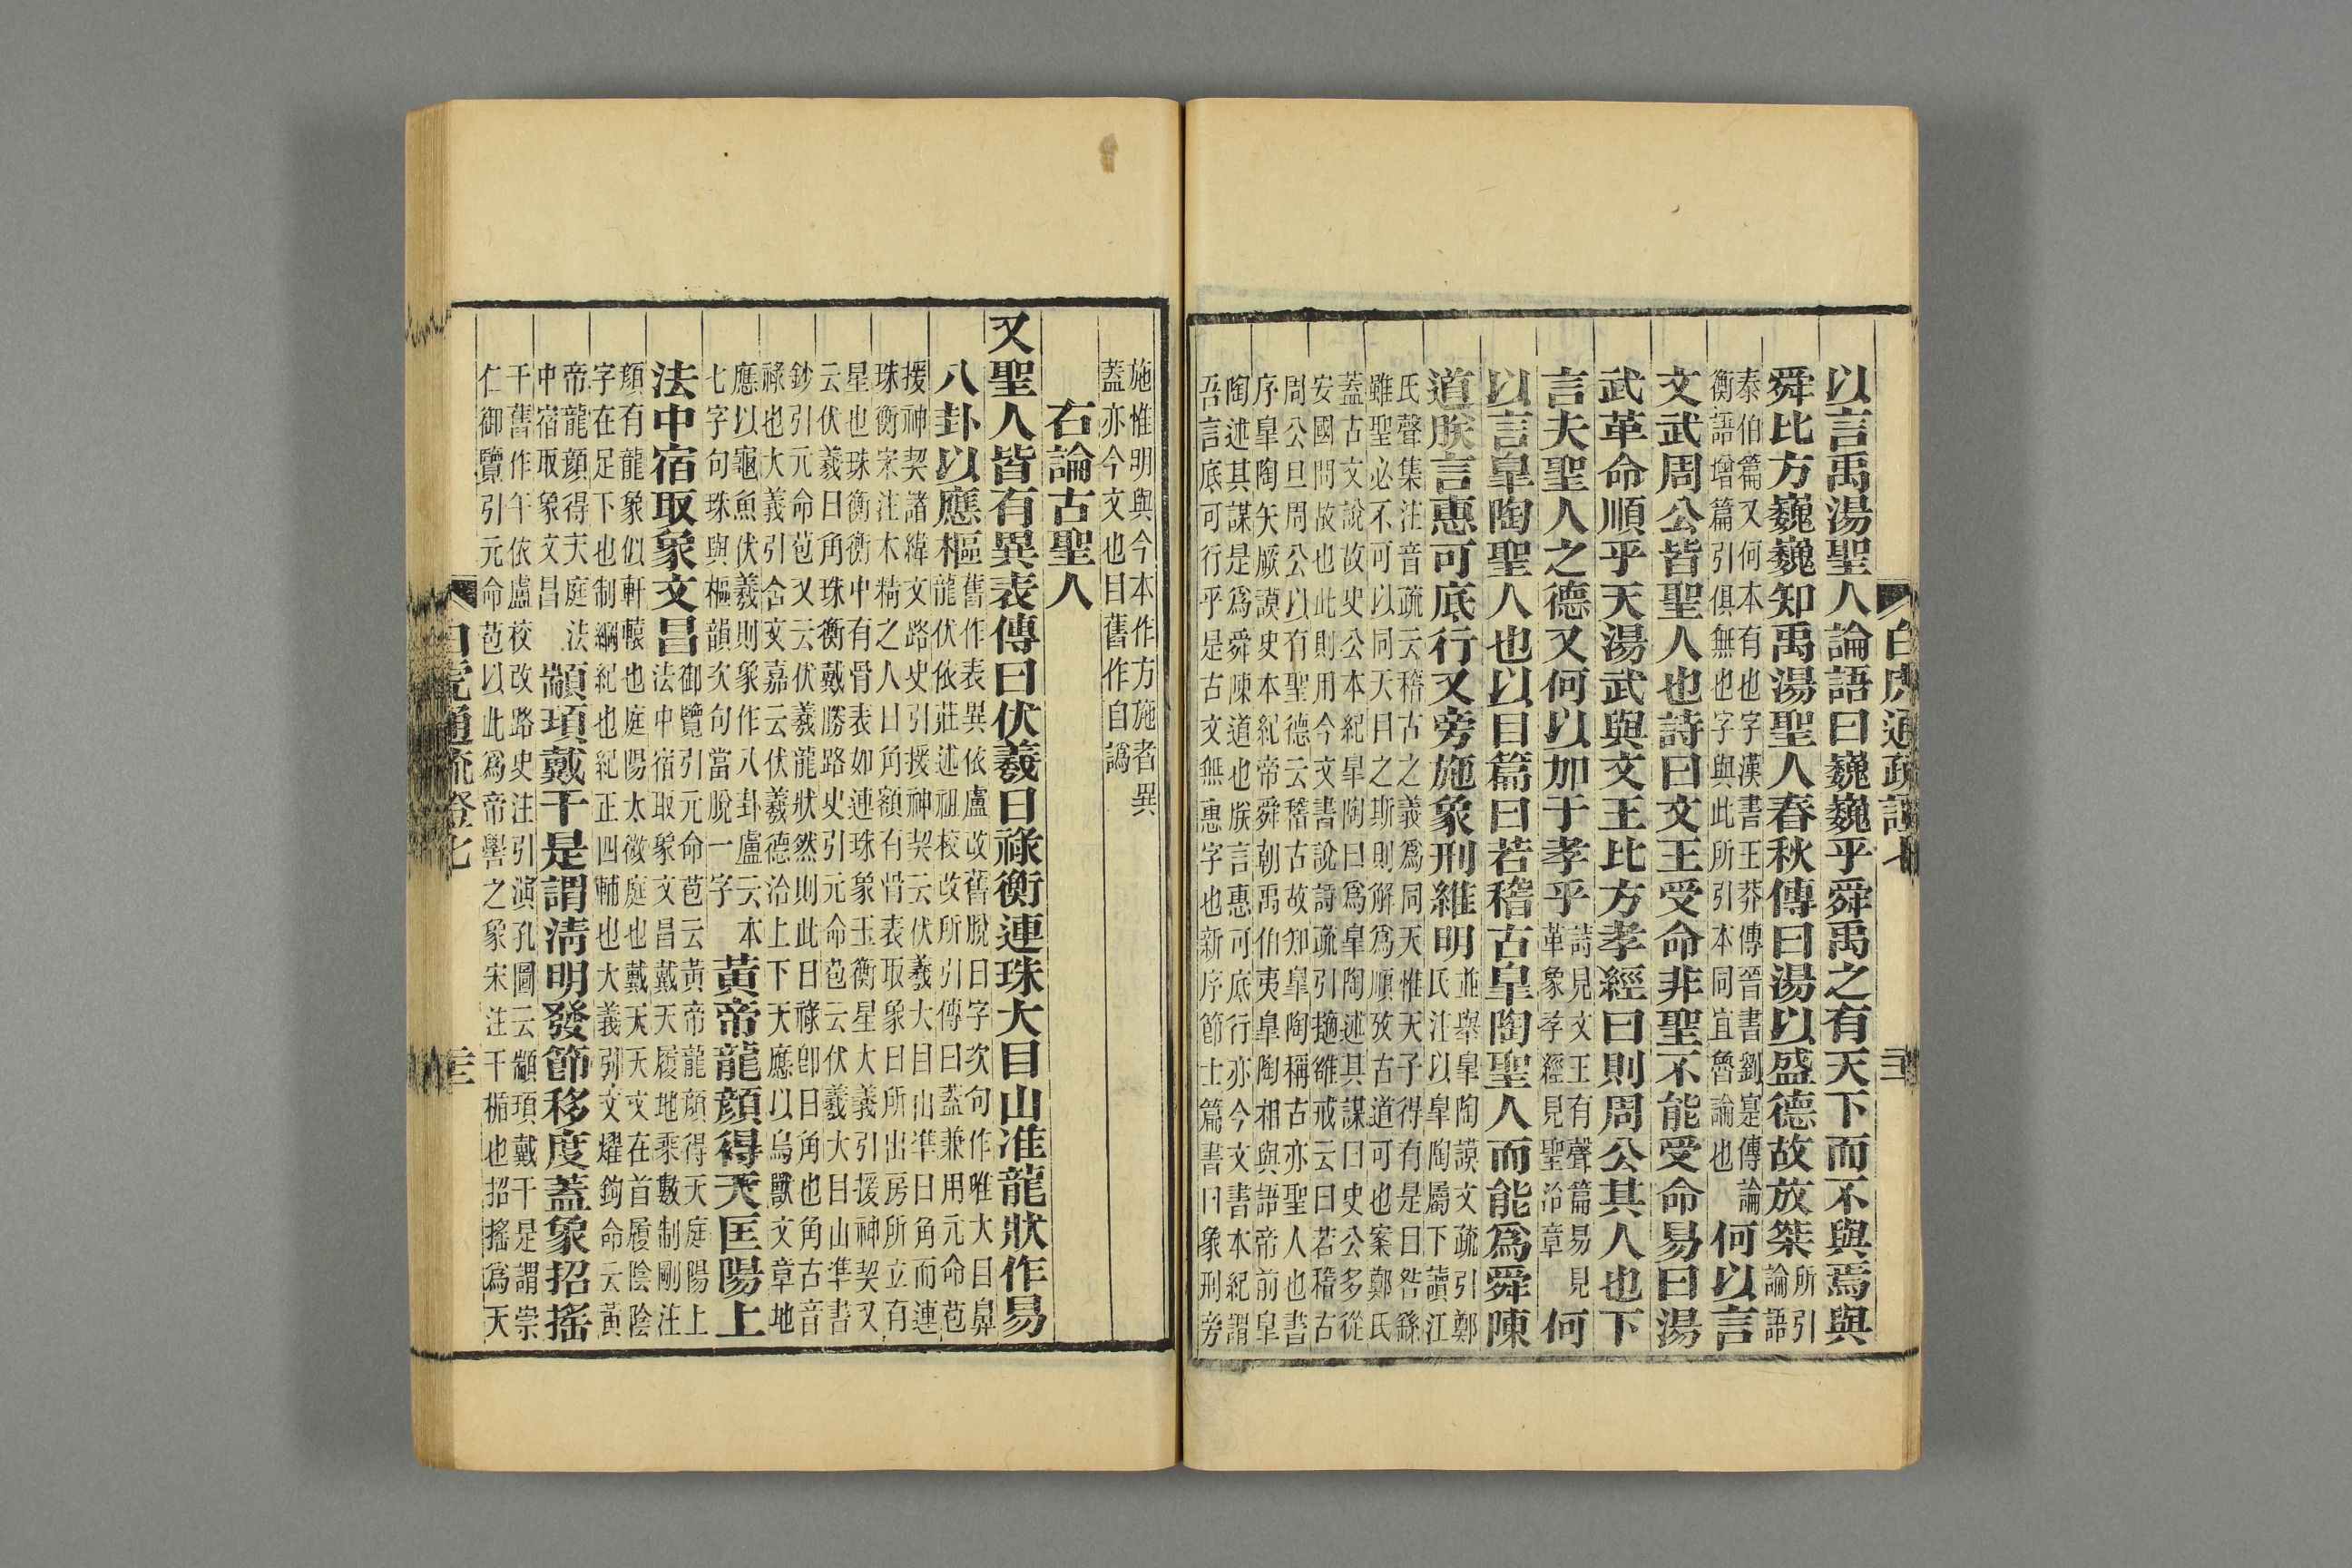 白虎通疏證七
以言禹湯聖人論語曰巍巍乎舜禹之有天下而不與焉與
舜比方巍巍知禹湯聖人春秋傳曰湯以盛德故放桀所引論語
泰伯篇又何本有也字漢書王莽傳晉書劉寔傳論衡語增篇引俱無也字與此所引本同宜魯論也何以言
文武周公皆聖人也詩曰文王受命非聖不能受命易曰湯
武革命順乎天湯武與文王比方孝經曰則周公其人也下
言夫聖人之德又何以加于孝乎詩見文王有聲篇易見革象孝經見聖治章何
以言皋陶聖人也以目篇曰若稽古皋陶聖人而能為舜陳
道朕言惠可底行又旁施象刑維明並舉皋陶謨文疏引鄭氏注以皋陶屬下讀江
氏聲集注音疏云稽古之義為同天惟天子得有是曰咎繇雖聖必不可以同天目之斯則解為順攷古道可也案鄭氏
蓋古文說故史公本紀皋陶曰為皋陶述其謀曰史公多從安國問故也此則用今文書說詩疏引摭雒戒云曰若稽古
周公旦周公以有聖德云稽古故知皋陶稱古亦聖人也書序皋陶矢厥謨史本紀帝舜朝禹伯夷皋陶相與語帝前皋
陶述其謀是為舜陳道也朕言惠可底行亦今文書本紀謂吾言底可行乎是古文無惠字也新序節士篇書曰象刑旁
施惟明與今本作方施者異蓋亦今文也目舊作自譌
右論古聖人
又聖人皆有異表傳曰伏羲日祿衡連珠大目山準龍狀作易
八卦以應樞舊作表異依盧改舊脫曰字次句作唯大目鼻龍伏依莊述祖校改所引傳曰蓋兼用元命苞
援神契諸緯文路史引援神契云伏羲大目山準日角而連珠衡宋注木精之人日角額有骨表取象日所出房所立有
星也珠衡衡中有骨表如連珠象玉衡星大義引援神契又云伏羲日角珠衡戴勝路史引元命苞云伏羲大目山準書
鈔引元命苞又云伏羲龍狀然則此日祿卽日角也角古音祿也大義引含文嘉云伏羲德洽上下天應以鳥獸文章地
應以龜魚伏羲則象作八卦盧云本七字句珠與樞韻次句當脫一字黃帝龍顏得天匡陽上
法中宿取象文昌御覽引元命苞云黃帝龍顏得天庭陽上法中宿取象文昌戴天履地乘數制剛注
顏有龍象似軒轅也庭陽太微庭也戴天天文在首履陰陰字在足下也制綱紀也紀正四輔也大義引文燿鉤命云黃
帝龍顏得天庭法中宿取象文昌顓頊戴干是謂清明發節移度蓋象招搖
干舊作午依盧校改路史注引演孔圖云顓頊戴干是謂崇仁御覽引元命苞以此為帝嚳之象宋注干楯也招搖為天